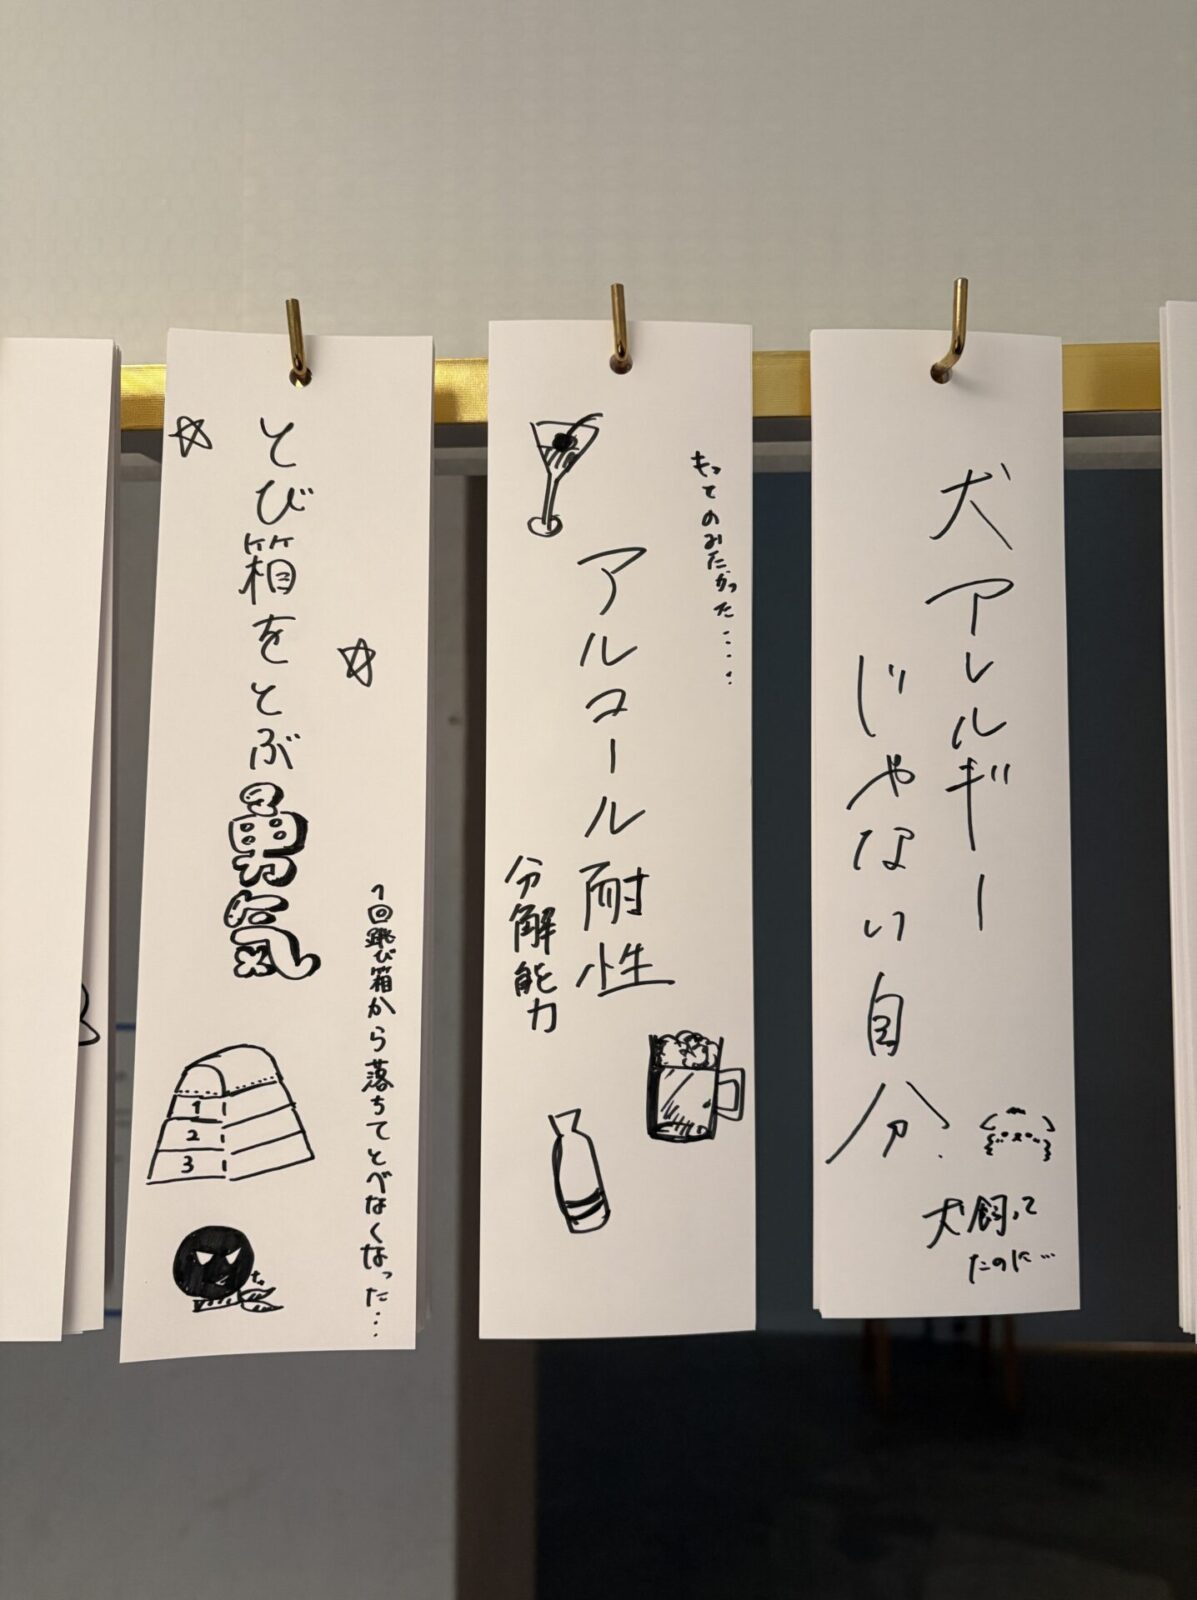 とび箱をとぶ勇気
1回跳び箱から落ちてとべなくなった…
1
2
3
もってのみたかった……
アルコール耐性
分解能力
犬アレルギー
じゃない自分
犬飼って
たのに…